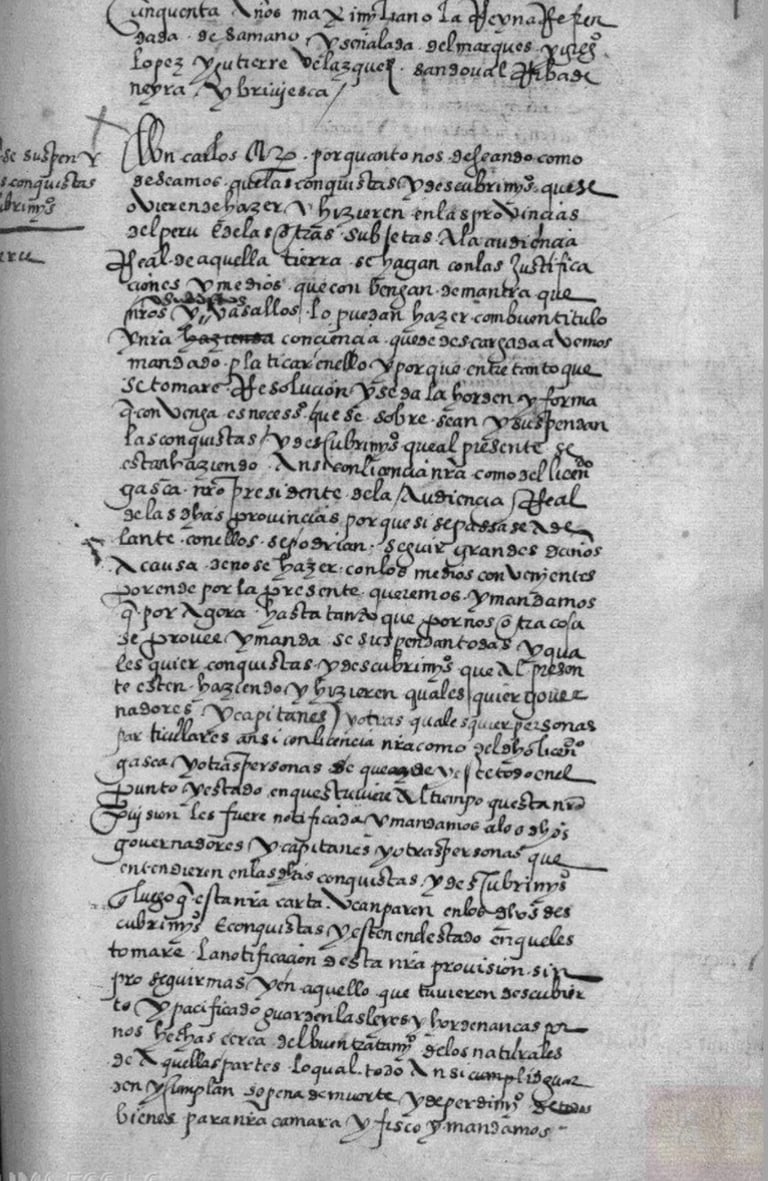 cinquenta años maximiliano la Reyna Refren
dada de samano y señalada del marques y greg°
lopez y gutierre Velazquez sandoval Ribade
neyra y briviesca
se suspen
s conquistas
ubrimy°s
eru
Don carlos &c por quanto nos deseando como
deseamos que las conquistas y descubrimy°s que se
ovieren de hazer y hizieren en las provincias
del peru e de las otras subjetas a la audiencia
Real de aquella tierra se hagan con las Justifica
ciones y medios que con bengan de mantra que
nros y vasallos lo puedan hazer con buen titulo
y nra hazienda conciencia quede descargada avemos
mandado platicar en ello y porque entre tanto que
se tomare Resolucion y se da la horden y forma
q convenga es neces° que se sobre sean y suspendan
las conquistas y descubrimy°s que al presente se
estan haziendo Ansi con licencia nra como del licen^do
gasca nro presidente de la Audiencia Real
de las dhas provincias porque si se passase Ade
lante con ellos se podrian seguir grandes daños
A causa de no se hazer con los medios convenientes
porende por la presente queremos y mandamos
q por Agora hasta tanto que por nos otra cosa
se provee y manda se suspendan todas y qua
les quier conquistas y descubrimy°s que Al presen
te esten haziendo y hizieren quales quier gover
nadores y capitanes y otras quales quier personas
particulares ansi con licencia nra como del dho licen°
gasca y otras personas de que se este todo en el
punto y estado en que estuviere Al tiempo que esta nra
Provision les fuere notificada y mandamos a los dhos
governadores y capitanes y otras personas que
entendieren en las dhas conquistas y descubrimy°s
q luego q esta nra carta Vean paren en los dhos des
cubrimy°s E conquistas y esten en el estado en que les
tomare la notificacion desta nra provision sin
proseguir mas y en aquello que tuvieren descubier
to y pacificado guarden las leyes y hordenancas por
nos hechas cerca del buen tratamy° de los naturales
de Aquellas partes lo qual todo Ansi cumpli e guar
den y cumplan so pena de muerte y de perdimy° de todos
bienes para nra camara y fisco y mandamos